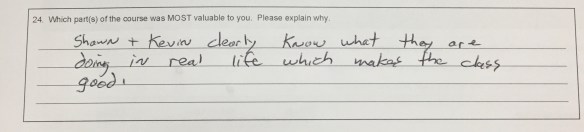 24. Which part(s) of the course was MOST valuable to you. Please explain why.
Shawn + Kevin clearly know what they are
doing in real life which makes the class
good.